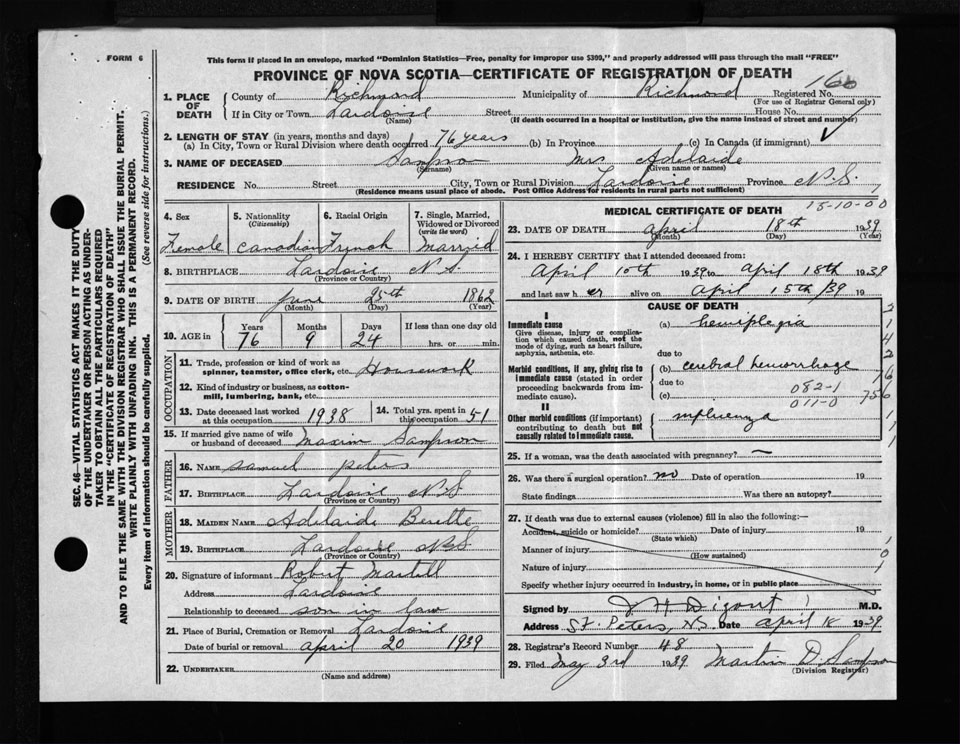 FORM 6
This form if placed in an envelope, marked "Dominion Statistics—Free, penalty for improper use $300," and properly addressed will pass through the mail "FREE"
PROVINCE OF NOVA SCOTIA—CERTIFICATE OF REGISTRATION OF DEATH
1. PLACE OF DEATH
County of Richmond Municipality of Richmond Registered No.
(For use of Registrar General only)
If in City or Town Lardoise Street House No.
(Name) (If death occurred in a hospital or institution, give the name instead of street and number)
2. LENGTH OF STAY (in years, months and days)
(a) In City, Town or Rural Division where death occurred 76 years (b) In Province (c) In Canada (if immigrant) ✓
3. NAME OF DECEASED Sampson Mrs Adelaide
(Surname) (Given name or names)
RESIDENCE No. Street City, Town or Rural Division Lardoise Province N.S.
(Residence means usual place of abode. Post Office Address for residents in rural parts not sufficient)
4. Sex Female
5. Nationality (Citizenship) Canadian
6. Racial Origin French
7. Single, Married, Widowed or Divorced (write the word) Married
8. BIRTHPLACE Lardoise N.S.
(Province or Country)
9. DATE OF BIRTH June 25th 1862
(Month) (Day) (Year)
10. AGE in Years 76 Months 9 Days 24 If less than one day old hrs. or min.
OCCUPATION
11. Trade, profession or kind of work as spinner, teamster, office clerk, etc. Housework
12. Kind of industry or business, as cotton-mill, lumbering, bank, etc.
13. Date deceased last worked at this occupation 1938
14. Total yrs. spent in this occupation 51
15. If married give name of wife or husband of deceased Maxim Sampson
FATHER
16. NAME Samuel Peters
17. BIRTHPLACE Lardoise N.S
(Province or Country)
MOTHER
18. MAIDEN NAME Adelaide
19. BIRTHPLACE Lardoise N.S
(Province or Country)
20. Signature of informant Robert Martell
Address Lardoise
Relationship to deceased son in law
21. Place of Burial, Cremation or Removal Lardoise
Date of burial or removal April 20 1939
22. UNDERTAKER
(Name and address)
MEDICAL CERTIFICATE OF DEATH
15-10-00
23. DATE OF DEATH April 18th 1939
(Month) (Day) (Year)
24. I HEREBY CERTIFY that I attended deceased from:
April 10th 1939 to April 18th 1939
and last saw h er alive on April 15th /39 19
CAUSE OF DEATH
I
Immediate cause
Give disease, injury or complication which caused death, not the mode of dying, such as heart failure, asphyxia, asthenia, etc.
(a) hemiplegia
due to
Morbid conditions, if any, giving rise to immediate cause (stated in order proceeding backwards from immediate cause).
(b) cerebral hemorrhage
due to
(c)
082-1
011-0
II
Other morbid conditions (if important) contributing to death but not causally related to immediate cause.
influenza
25. If a woman, was the death associated with pregnancy? —
26. Was there a surgical operation? no Date of operation 19
State findings Was there an autopsy?
27. If death was due to external causes (violence) fill in also the following:—
Accident, suicide or homicide? Date of injury 19
(State which)
Manner of injury
(How sustained)
Nature of injury
Specify whether injury occurred in industry, in home, or in public place
Signed by M.D.
Address St. Peters, N.S. Date April 18 1939
28. Registrar's Record Number 48
29. Filed May 3rd 1939 Martin D. Sampson
(Division Registrar)
SEC. 46—VITAL STATISTICS ACT MAKES IT THE DUTY
OF THE UNDERTAKER OR PERSON ACTING AS UNDER-
TAKER TO OBTAIN ALL THE PARTICULARS REQUIRED
IN THE "CERTIFICATE OF REGISTRATION OF DEATH"
AND TO FILE THE SAME WITH THE DIVISION REGISTRAR WHO SHALL ISSUE THE BURIAL PERMIT.
WRITE PLAINLY WITH UNFADING INK. THIS IS A PERMANENT RECORD.
Every item of information should be carefully supplied. (See reverse side for instructions.)